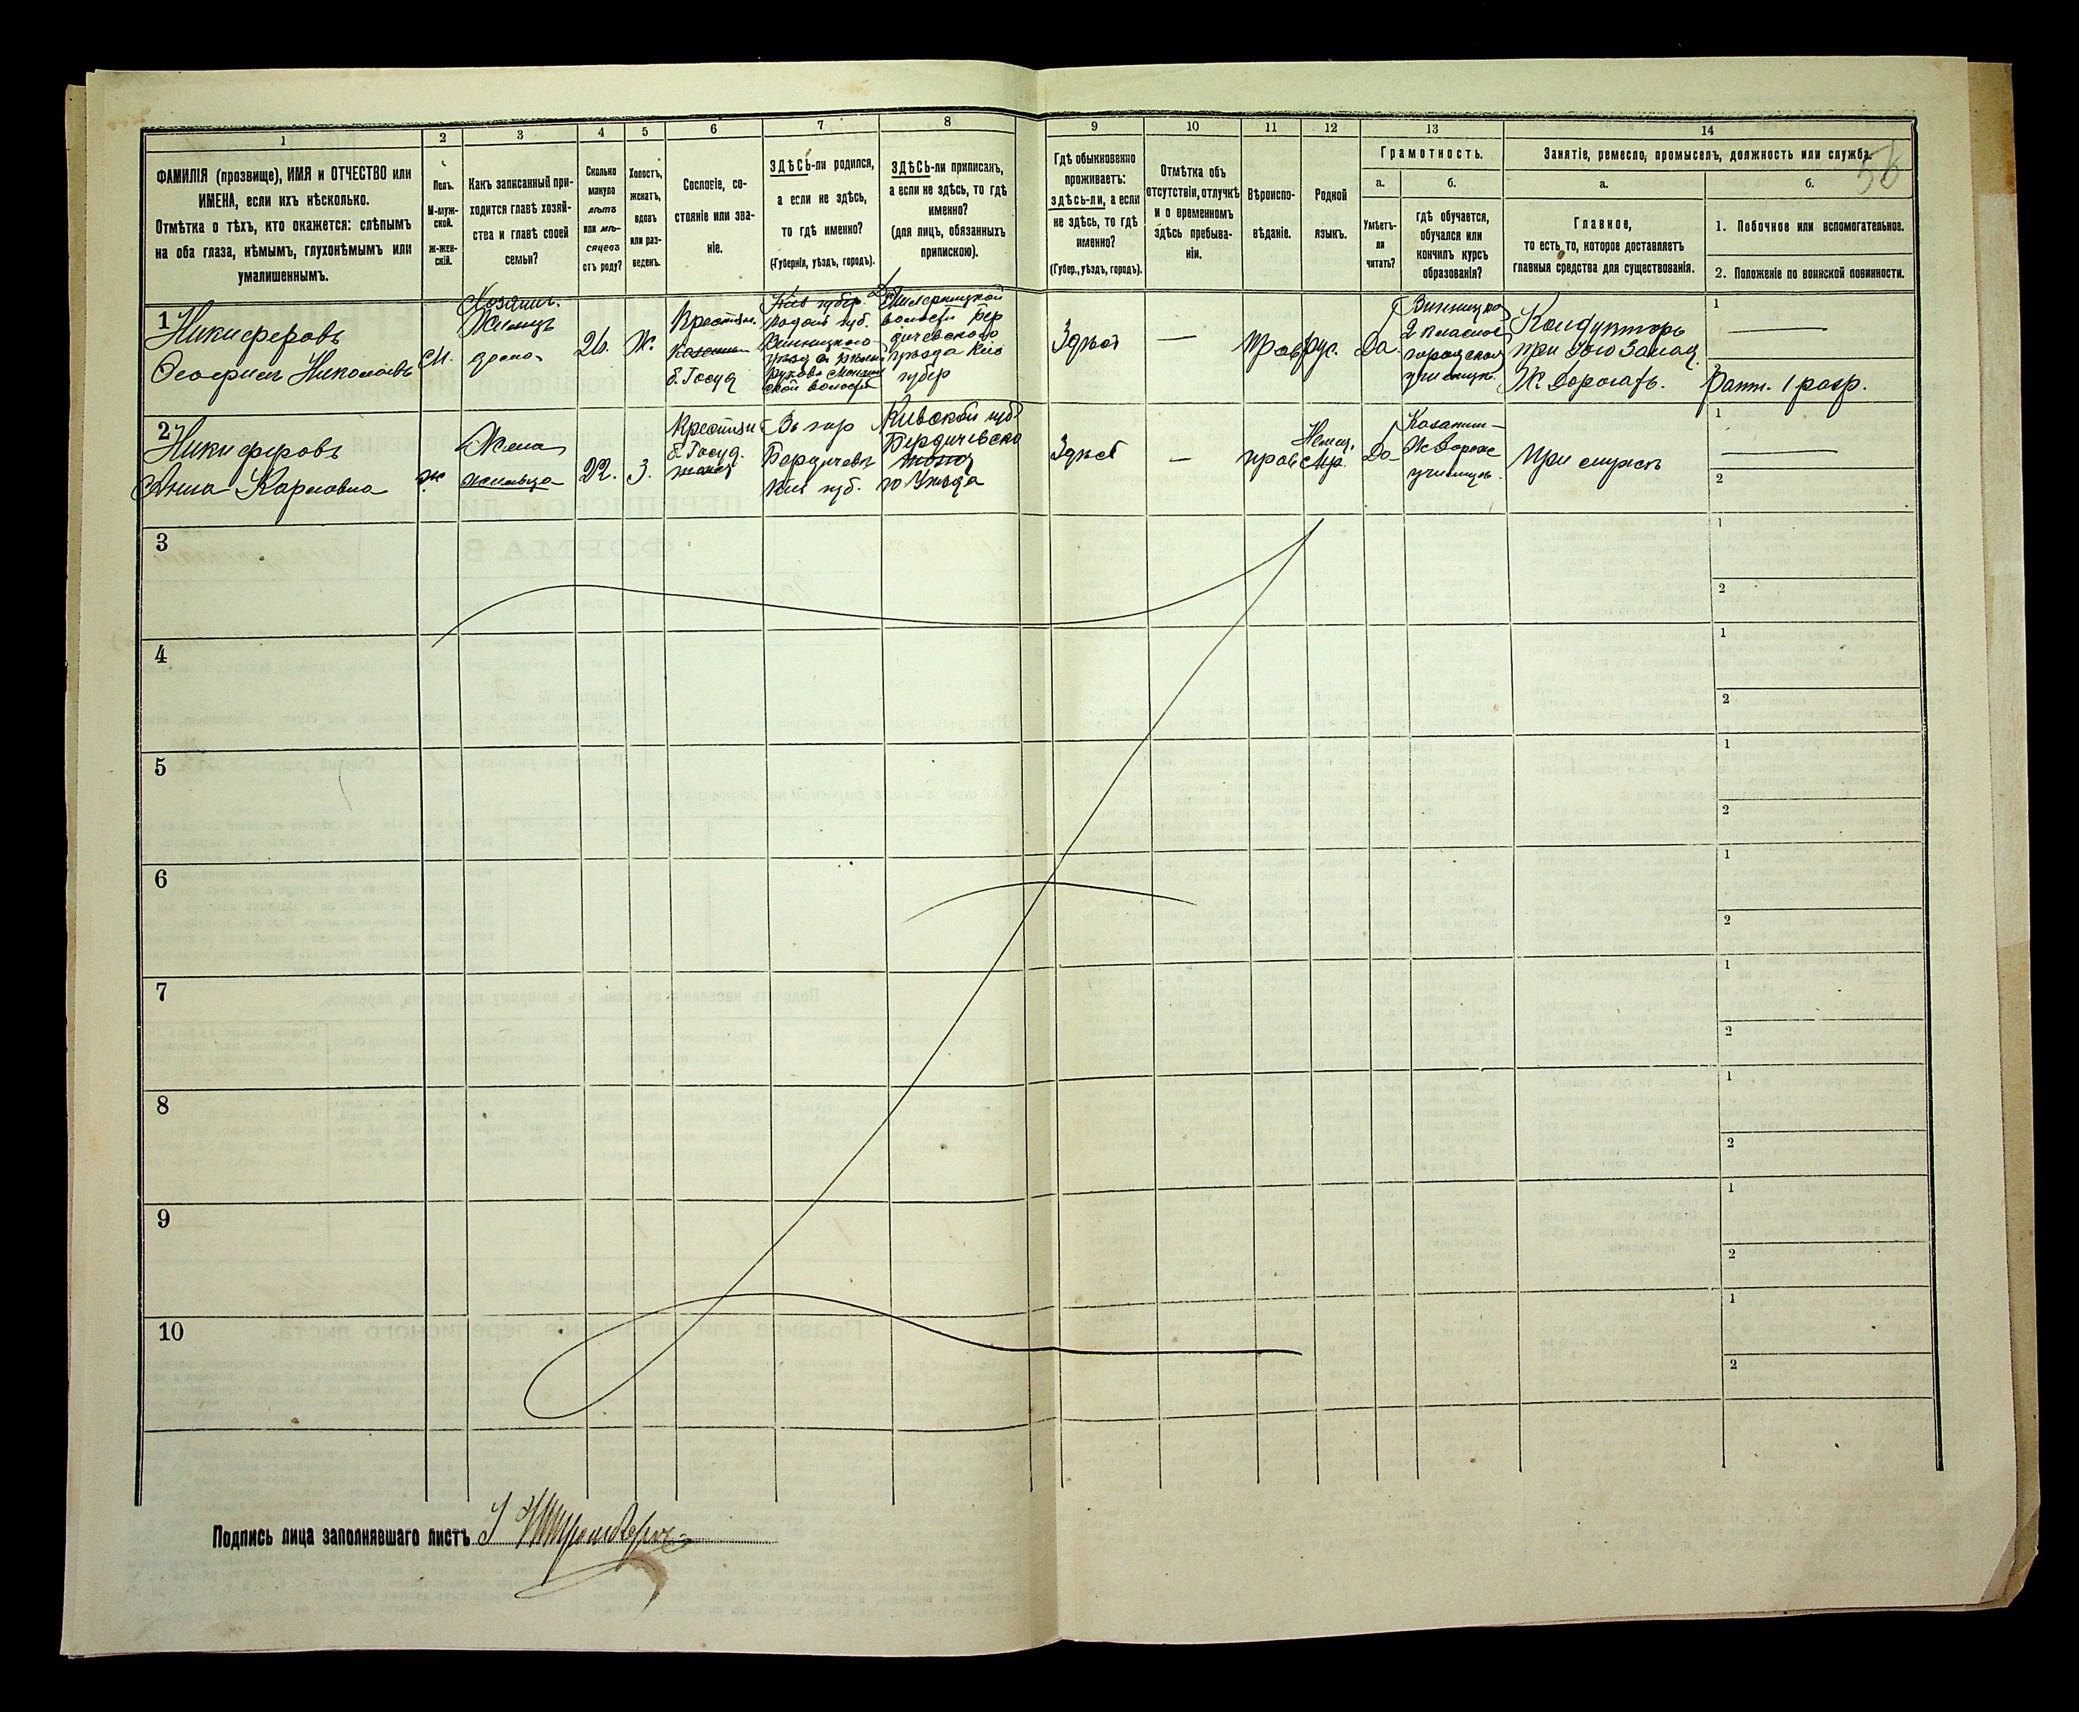 1 2 3 4 5 6 7 8 9 10 11 12 13 14
56
ФАМИЛІЯ (прозвище), ИМЯ и ОТЧЕСТВО или
ИМЕНА, если ихъ нѣсколько.
Отмѣтка о тѣхъ, кто окажется: слѣпымъ
на оба глаза, нѣмымъ, глухонѣмымъ или
умалишеннымъ.
Полъ.
М-муж-
ской.
Ж-жен-
скій.
Какъ записанный при-
ходится главѣ хозяй-
ства и главѣ своей
семьи?
Сколько
минуло
лѣтъ
или мѣ-
сяцевъ
отъ роду?
Холостъ,
женатъ,
вдовъ
или раз-
веденъ.
Сословіе, со-
стояніе или зва-
ніе.
ЗДѢСЬ-ли родился,
а если не здѣсь,
то гдѣ именно?
(Губернія, уѣздъ, городъ).
ЗДѢСЬ-ли приписанъ,
а если не здѣсь, то гдѣ
именно?
(для лицъ, обязанныхъ
припискою).
Гдѣ обыкновенно
проживаетъ:
здѣсь-ли, а если
не здѣсь, то гдѣ
именно?
(Губер., уѣздъ, городъ).
Отмѣтка объ
отсутствіи, отлучкѣ
и о временномъ
здѣсь пребыва-
ніи.
Вѣроиспо-
вѣданіе.
Родной
языкъ.
Грамотность.
а.
Умѣетъ-
ли
читать?
б.
гдѣ обучается,
обучался или
кончилъ курсъ
образованія?
Занятіе, ремесло, промыселъ, должность или служба.
а.
Главное,
то есть то, которое доставляетъ
главныя средства для существованія.
б.
1. Побочное или вспомогательное.
2. Положеніе по воинской повинности.
1
Никиферовъ
Николаевъ
М.
Хозяинъ.
Жилецъ
26.
Ж.
Крестьян.
б. Госуд
Кіев губер.
Подол губ.
Винницкого
волости
волости Бер
дичевского
уѣзда Кіев
губер
Здѣсь
—
Прав
рус.
Да.
Винницко
2 класное
городское
училище.
Кондукторъ
при Юго Запад.
Ж. Дорогахъ.
1
2
Ратн. 1 разр.
2
Никиферова
Анна Карловна
Ж
Жена
жильца
22.
З.
Крестьян
б. Госуд.
Въ гор
Бердичевъ
Кіев губ.
Кіевской губ
Бердичевско
го Уѣзда
Здѣсь
—
прав
Немец.
Да
Казатин-
Ж Дорож
училище.
При мужѣ
1
2
3
1
2
4
1
2
5
1
2
6
1
2
7
1
2
8
1
2
9
1
2
10
1
2
Подпись лица заполнявшаго листъ